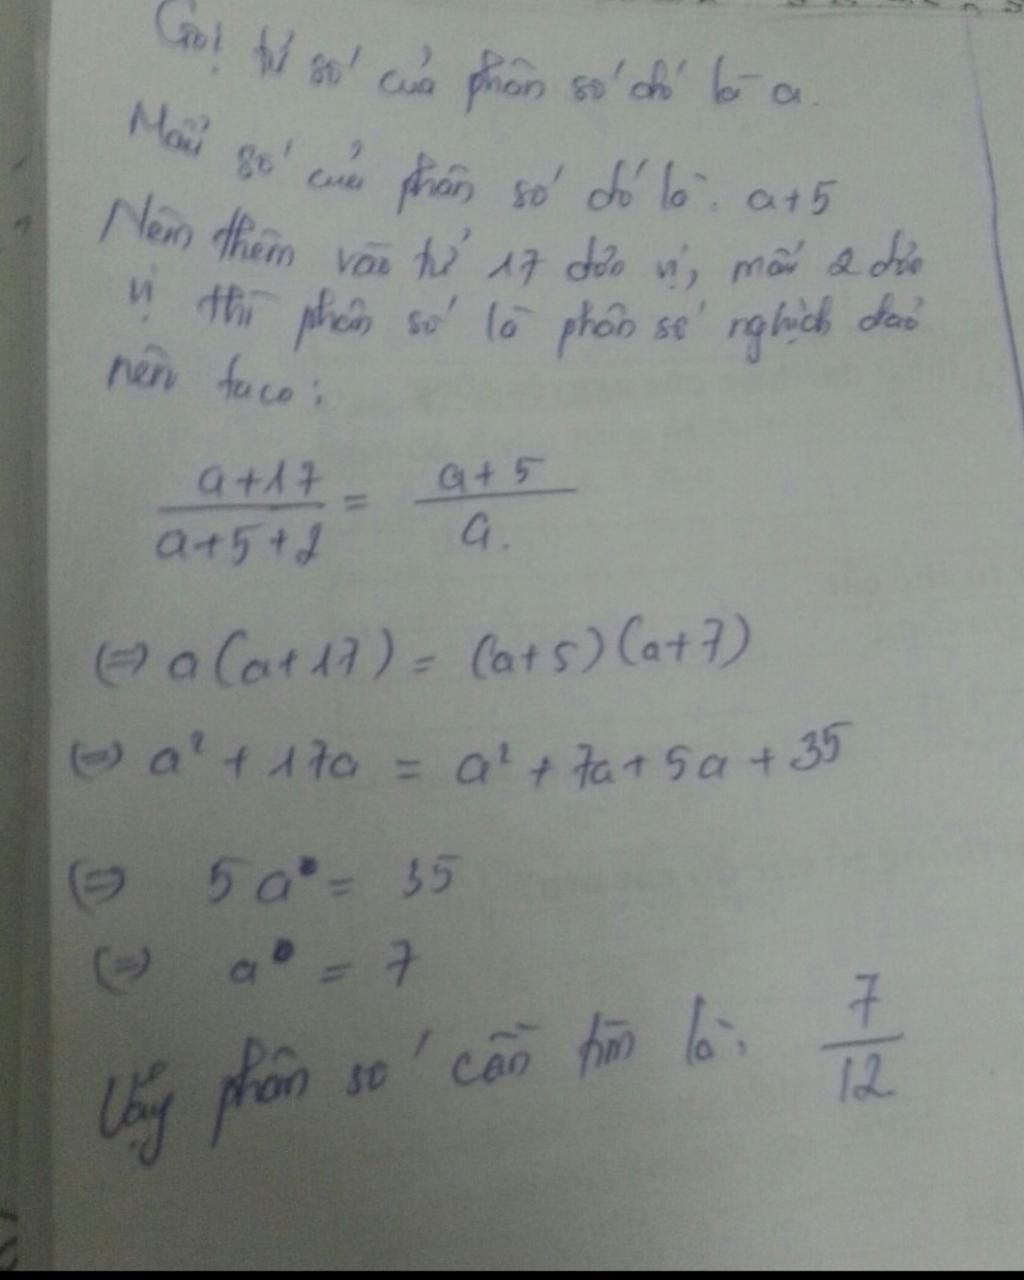 Gọi tử số của phân số đó là a.
Mẫu số của phân số đó là: a+5
Nếu thêm vào tử 17 đơn vị, mẫu 2 đơn
vị thì phân số là phân số nghịch đảo
nên ta có:
a+17 / a+5+2 = a+5 / a.
(=) a(a+17) = (a+5)(a+7)
(=) a² + 17a = a² + 7a + 5a + 35
(=) 5a = 35
(=) a = 7
Vậy phân số cần tìm là: 7/12